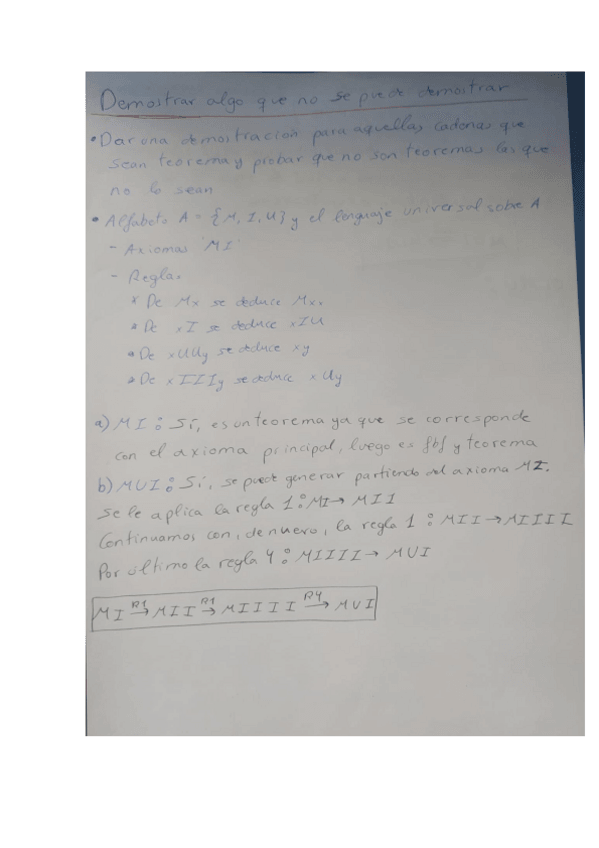 Demostrar algo que no se puede demostrar
• Dar una demostración para aquellas cadenas que
sean teorema y probar que no son teoremas las que
no lo sean
• Alfabeto A = {M, I, U} y el lenguaje universal sobre A
- Axiomas 'MI'
- Reglas
* De Mx se deduce Mxx
* De xI se deduce xIU
* De xUUy se deduce xy
* De xIIIy se deduce xUy
a) MI: Sí, es un teorema ya que se corresponde
con el axioma principal, luego es fbf y teorema
b) MUI: Sí, se puede generar partiendo del axioma MI.
Se le aplica la regla 1: MI → MII
Continuamos con, de nuevo, la regla 1: MII → MIIII
Por último la regla 4: MIIII → MUI
MI R1→ MII R1→ MIIII R4→ MUI